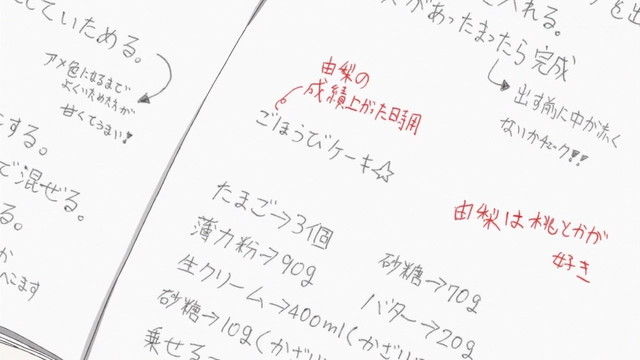 していためる。
アメ色になるまで
よくいためた方が
甘くてうまい!
にする。
で混ぜる。
る。
か
へこます
入れる。
があったまったら完成
出す前に中が赤く
ないかチェック!!
由梨の
成績上がった日時用
ごほうびケーキ☆
由梨は桃とかが
好き
たまご→3個
薄力粉→90g
砂糖→70g
生クリーム→400ml(かざい
バター→20g
砂糖→10g(かざ
乗せる